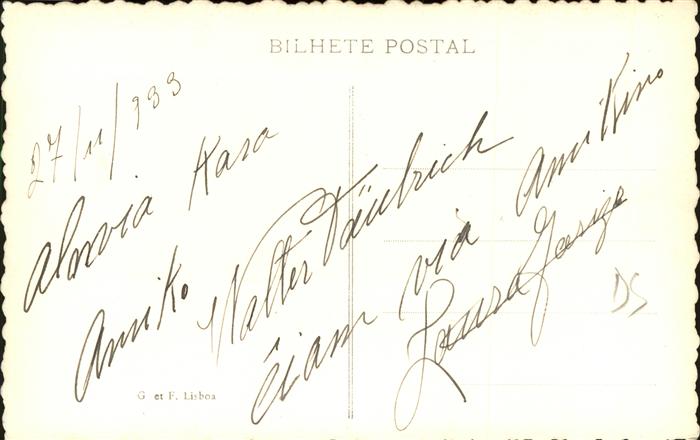 BILHETE POSTAL
27/11/933
al mia Kara
Amiko
Walter Däubrich
ĉiam via Amikino
Laura
G et F. Lisboa
DS